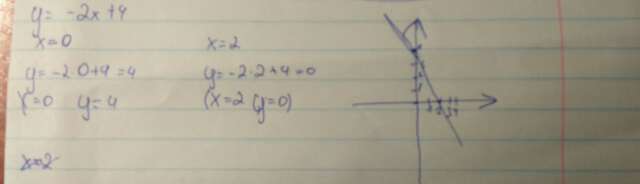 y = -2x + 4
x = 0
y = -2·0+4 = 4
x = 0 y = 4
x = 2
y = -2·2+4 = 0
(x = 2 (y = 0)
x = 2
1 2 3 4